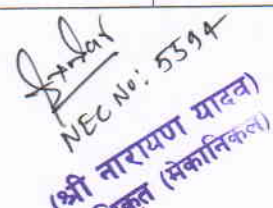 NEC No: 5594
(श्री नारायण यादव)
(मेकानिकल)